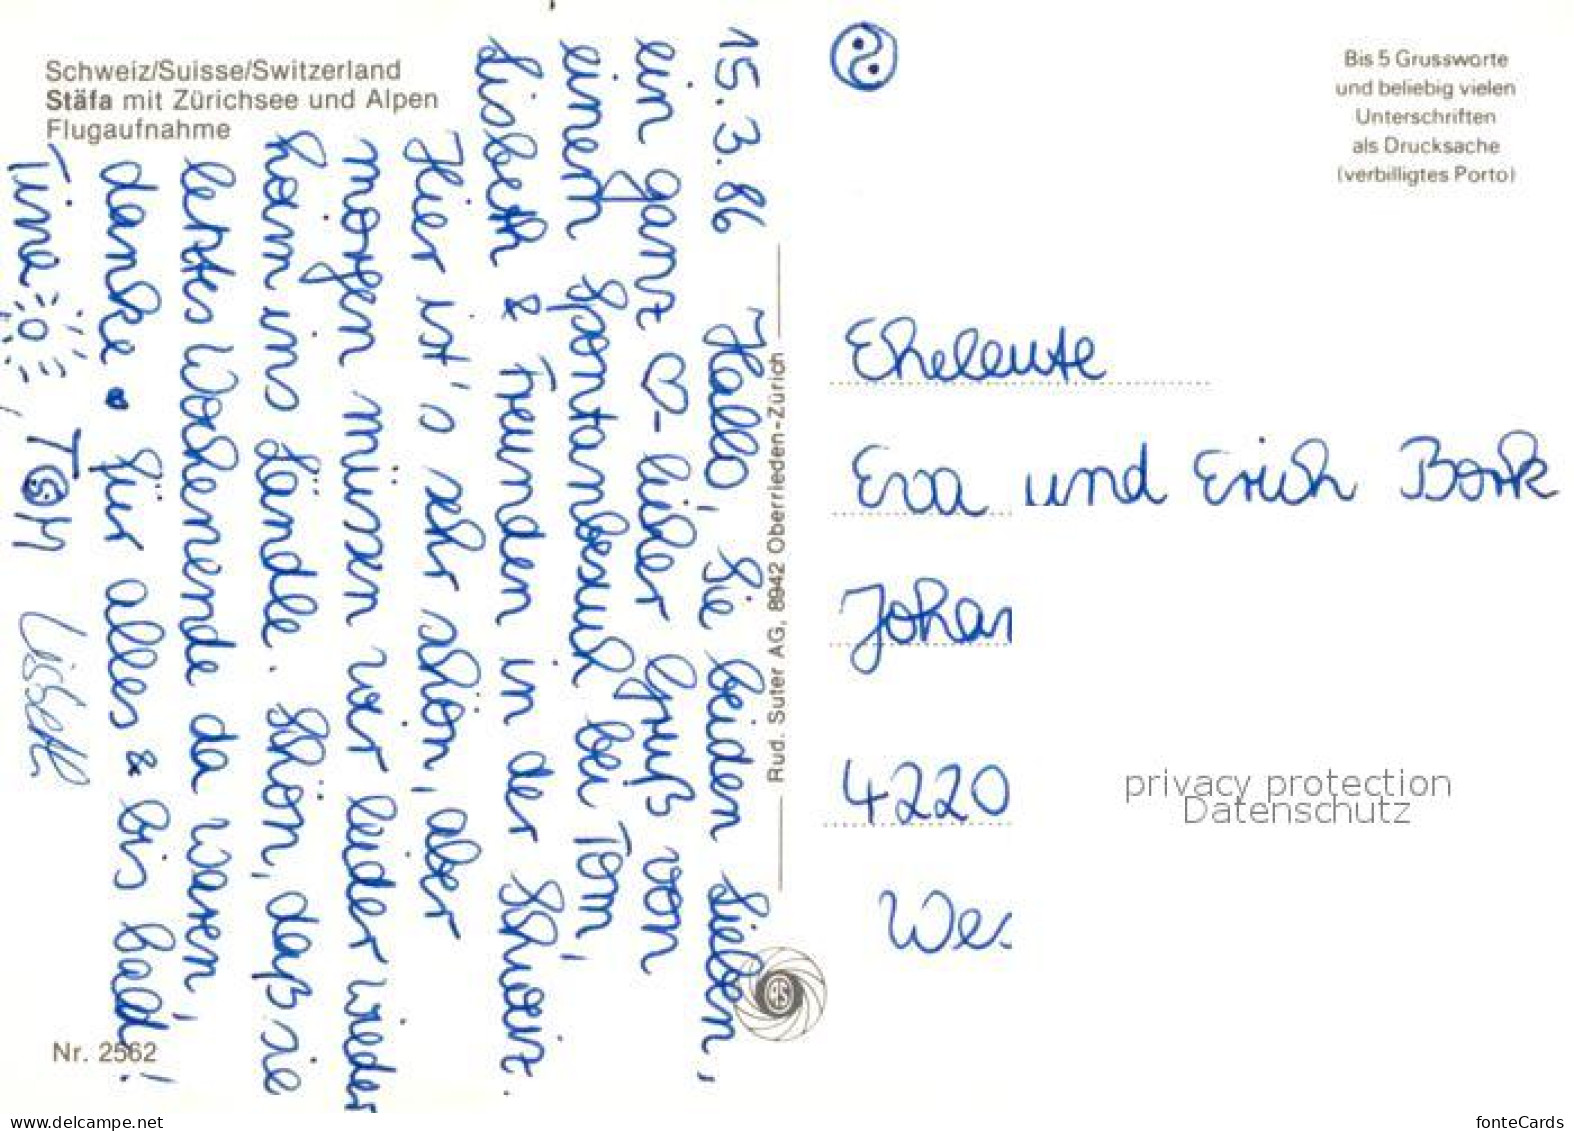 Schweiz/Suisse/Switzerland
Stäfa mit Zürichsee und Alpen
Flugaufnahme
15.3.86 Hallo, Sie beiden Lieben,
ein ganz ♡-licher Gruß von
einem Spontanbesuch bei Tom,
Lisbeth & Freunden in der Schweiz.
Hier ist's sehr schön, aber
morgen müssen wir leider wieder
heim ins Ländle. Schön, daß sie
letztes Wochenende da waren,
danke für alles & bis bald!
Tine, TOM Lisbeth
Nr. 2562
Rud. Suter AG, 8942 Oberrieden-Zürich
RS
Bis 5 Grussworte
und beliebig vielen
Unterschriften
als Drucksache
(verbilligtes Porto)
Eheleute
Eva und Erich Bork
Johan
4220
We
privacy protection
Datenschutz
www.delcampe.net
fonteCards